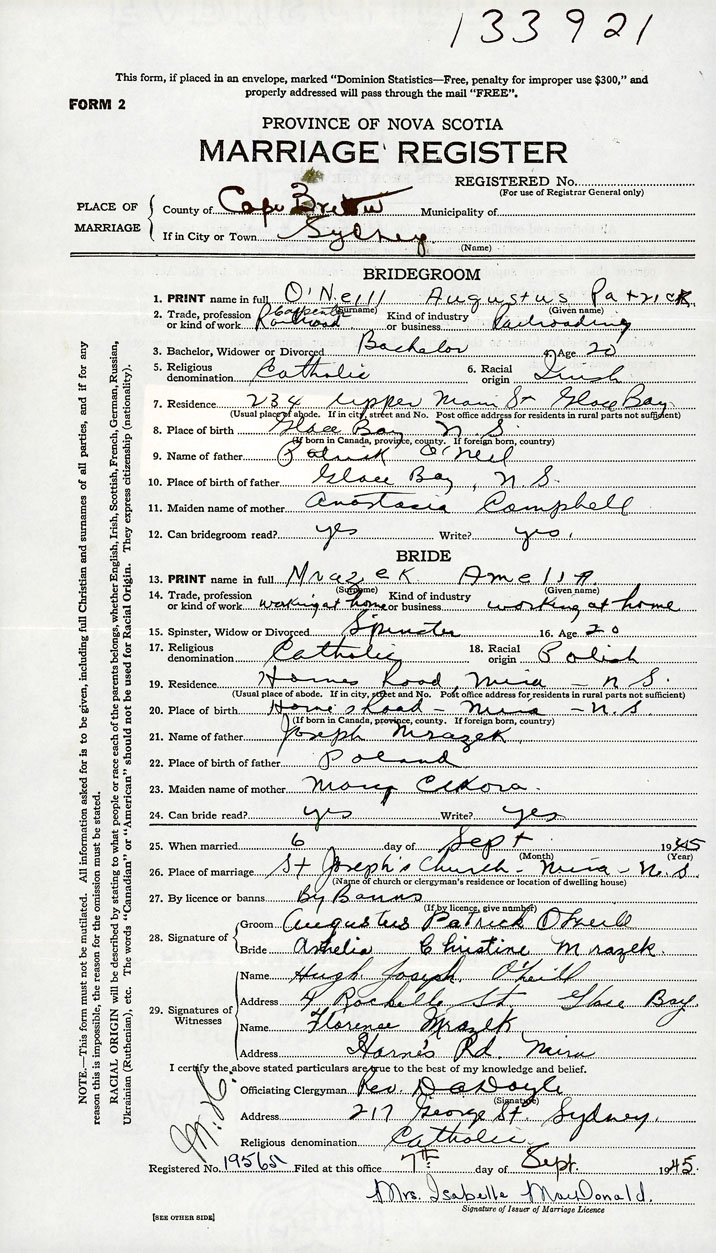 133921
This form, if placed in an envelope, marked "Dominion Statistics—Free, penalty for improper use $300," and
properly addressed will pass through the mail "FREE".
FORM 2
PROVINCE OF NOVA SCOTIA
MARRIAGE REGISTER
REGISTERED No.
(For use of Registrar General only)
PLACE OF MARRIAGE
County of Cape Breton Municipality of
If in City or Town Sydney
(Name)
BRIDEGROOM
1. PRINT name in full O'Neill Augustus Patrick
(Surname) (Given name)
2. Trade, profession or kind of work Carpenter Railroad Kind of industry or business Railroading
3. Bachelor, Widower or Divorced Bachelor 4. Age 20
5. Religious denomination Catholic 6. Racial origin Irish
7. Residence 234 Upper Main St Glace Bay
(Usual place of abode. If in city, street and No. Post office address for residents in rural parts not sufficient)
8. Place of birth Glace Bay N S
(If born in Canada, province, county. If foreign born, country)
9. Name of father Patrick O'Neil
10. Place of birth of father Glace Bay, N S.
11. Maiden name of mother Anastasia Campbell
12. Can bridegroom read? yes Write? yes.
BRIDE
13. PRINT name in full Mrazek Amelia
(Surname) (Given name)
14. Trade, profession or kind of work working at home Kind of industry or business working at home
15. Spinster, Widow or Divorced Spinster 16. Age 20
17. Religious denomination Catholic 18. Racial origin Polish
19. Residence Hornes Road, Mira - N S.
(Usual place of abode. If in city, street and No. Post office address for residents in rural parts not sufficient)
20. Place of birth Horne's Road - Mira - N.S.
(If born in Canada, province, county. If foreign born, country)
21. Name of father Joseph Mrazek
22. Place of birth of father Poland
23. Maiden name of mother Mary
24. Can bride read? yes Write? yes
25. When married 6 day of Sept 1945
(Month) (Year)
26. Place of marriage St Joseph's Church - Mira - N. S.
(Name of church or clergyman's residence or location of dwelling house)
27. By licence or banns By Banns
(If by licence, give number)
28. Signature of
Groom Augustus Patrick O'Neill
Bride Amelia Christine Mrazek.
29. Signatures of Witnesses
Name Hugh Joseph O'Neill
Address 4 Rochelle St Glace Bay.
Name Florence Mrazek
Address Horne's Rd. Mira
I certify the above stated particulars are true to the best of my knowledge and belief.
Officiating Clergyman Rev. D A Doyle
(Signature)
Address 217 George St. Sydney.
Religious denomination Catholic.
Registered No. 19565 Filed at this office 7th day of Sept. 1945.
Mrs. Isabelle MacDonald.
Signature of Issuer of Marriage Licence
[SEE OTHER SIDE]
NOTE.—This form must not be mutilated. All information asked for is to be given, including full Christian and surnames of all parties, and if for any
reason this is impossible, the reason for the omission must be stated.
RACIAL ORIGIN will be described by stating to what people or race each of the parents belongs, whether English, Irish, Scottish, French, German, Russian,
Ukrainian (Ruthenian), etc. The words "Canadian" or "American" should not be used for Racial Origin. They express citizenship (nationality).